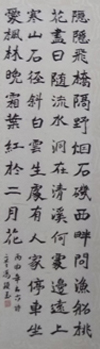 隱隱飛橋隔野烟石磯西畔問漁船桃
花盡日随流水洞在清溪何處邊遠上
寒山石徑斜白雲生處有人家停車坐
愛楓林晚霜葉紅於二月花